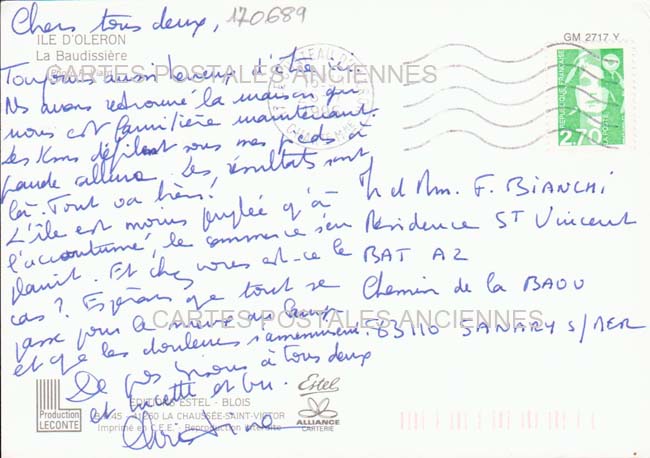 Chers tous deux,
170689
ILE D'OLERON
La Baudissière
GM 2717 Y
CARTES POSTALES ANCIENNES
REPUBLIQUE FRANÇAISE
2,70
LA POSTE
Toujours aussi heureux d'être ici.
Ns avons retrouvé la maison qui
nous est familière maintenant.
Les Kms défilent sous mes pieds à
grande allure. Les résultats sont
là. Tout va bien!
L'île est moins peuplée qu'à
l'accoutumé, le commerce s'en
plaint. Et chez vous est-ce le
cas ? Espérons que tout se
passe pour le mieux
et que les douleurs s'amenuisent.
bisous à tous deux
et
Christine
M et Mm. F. BIANCHI
Résidence ST Vincent
BAT A2
Chemin de la BAOU
83110 SANARY S/MER
CARTES POSTALES ANCIENNES
Production
LECONTE
EDITIONS ESTEL - BLOIS
41260 LA CHAUSSÉE-SAINT-VICTOR
Imprimé en C.E.E. - Reproduction interdite
Estel
ALLIANCE
CARTERIE